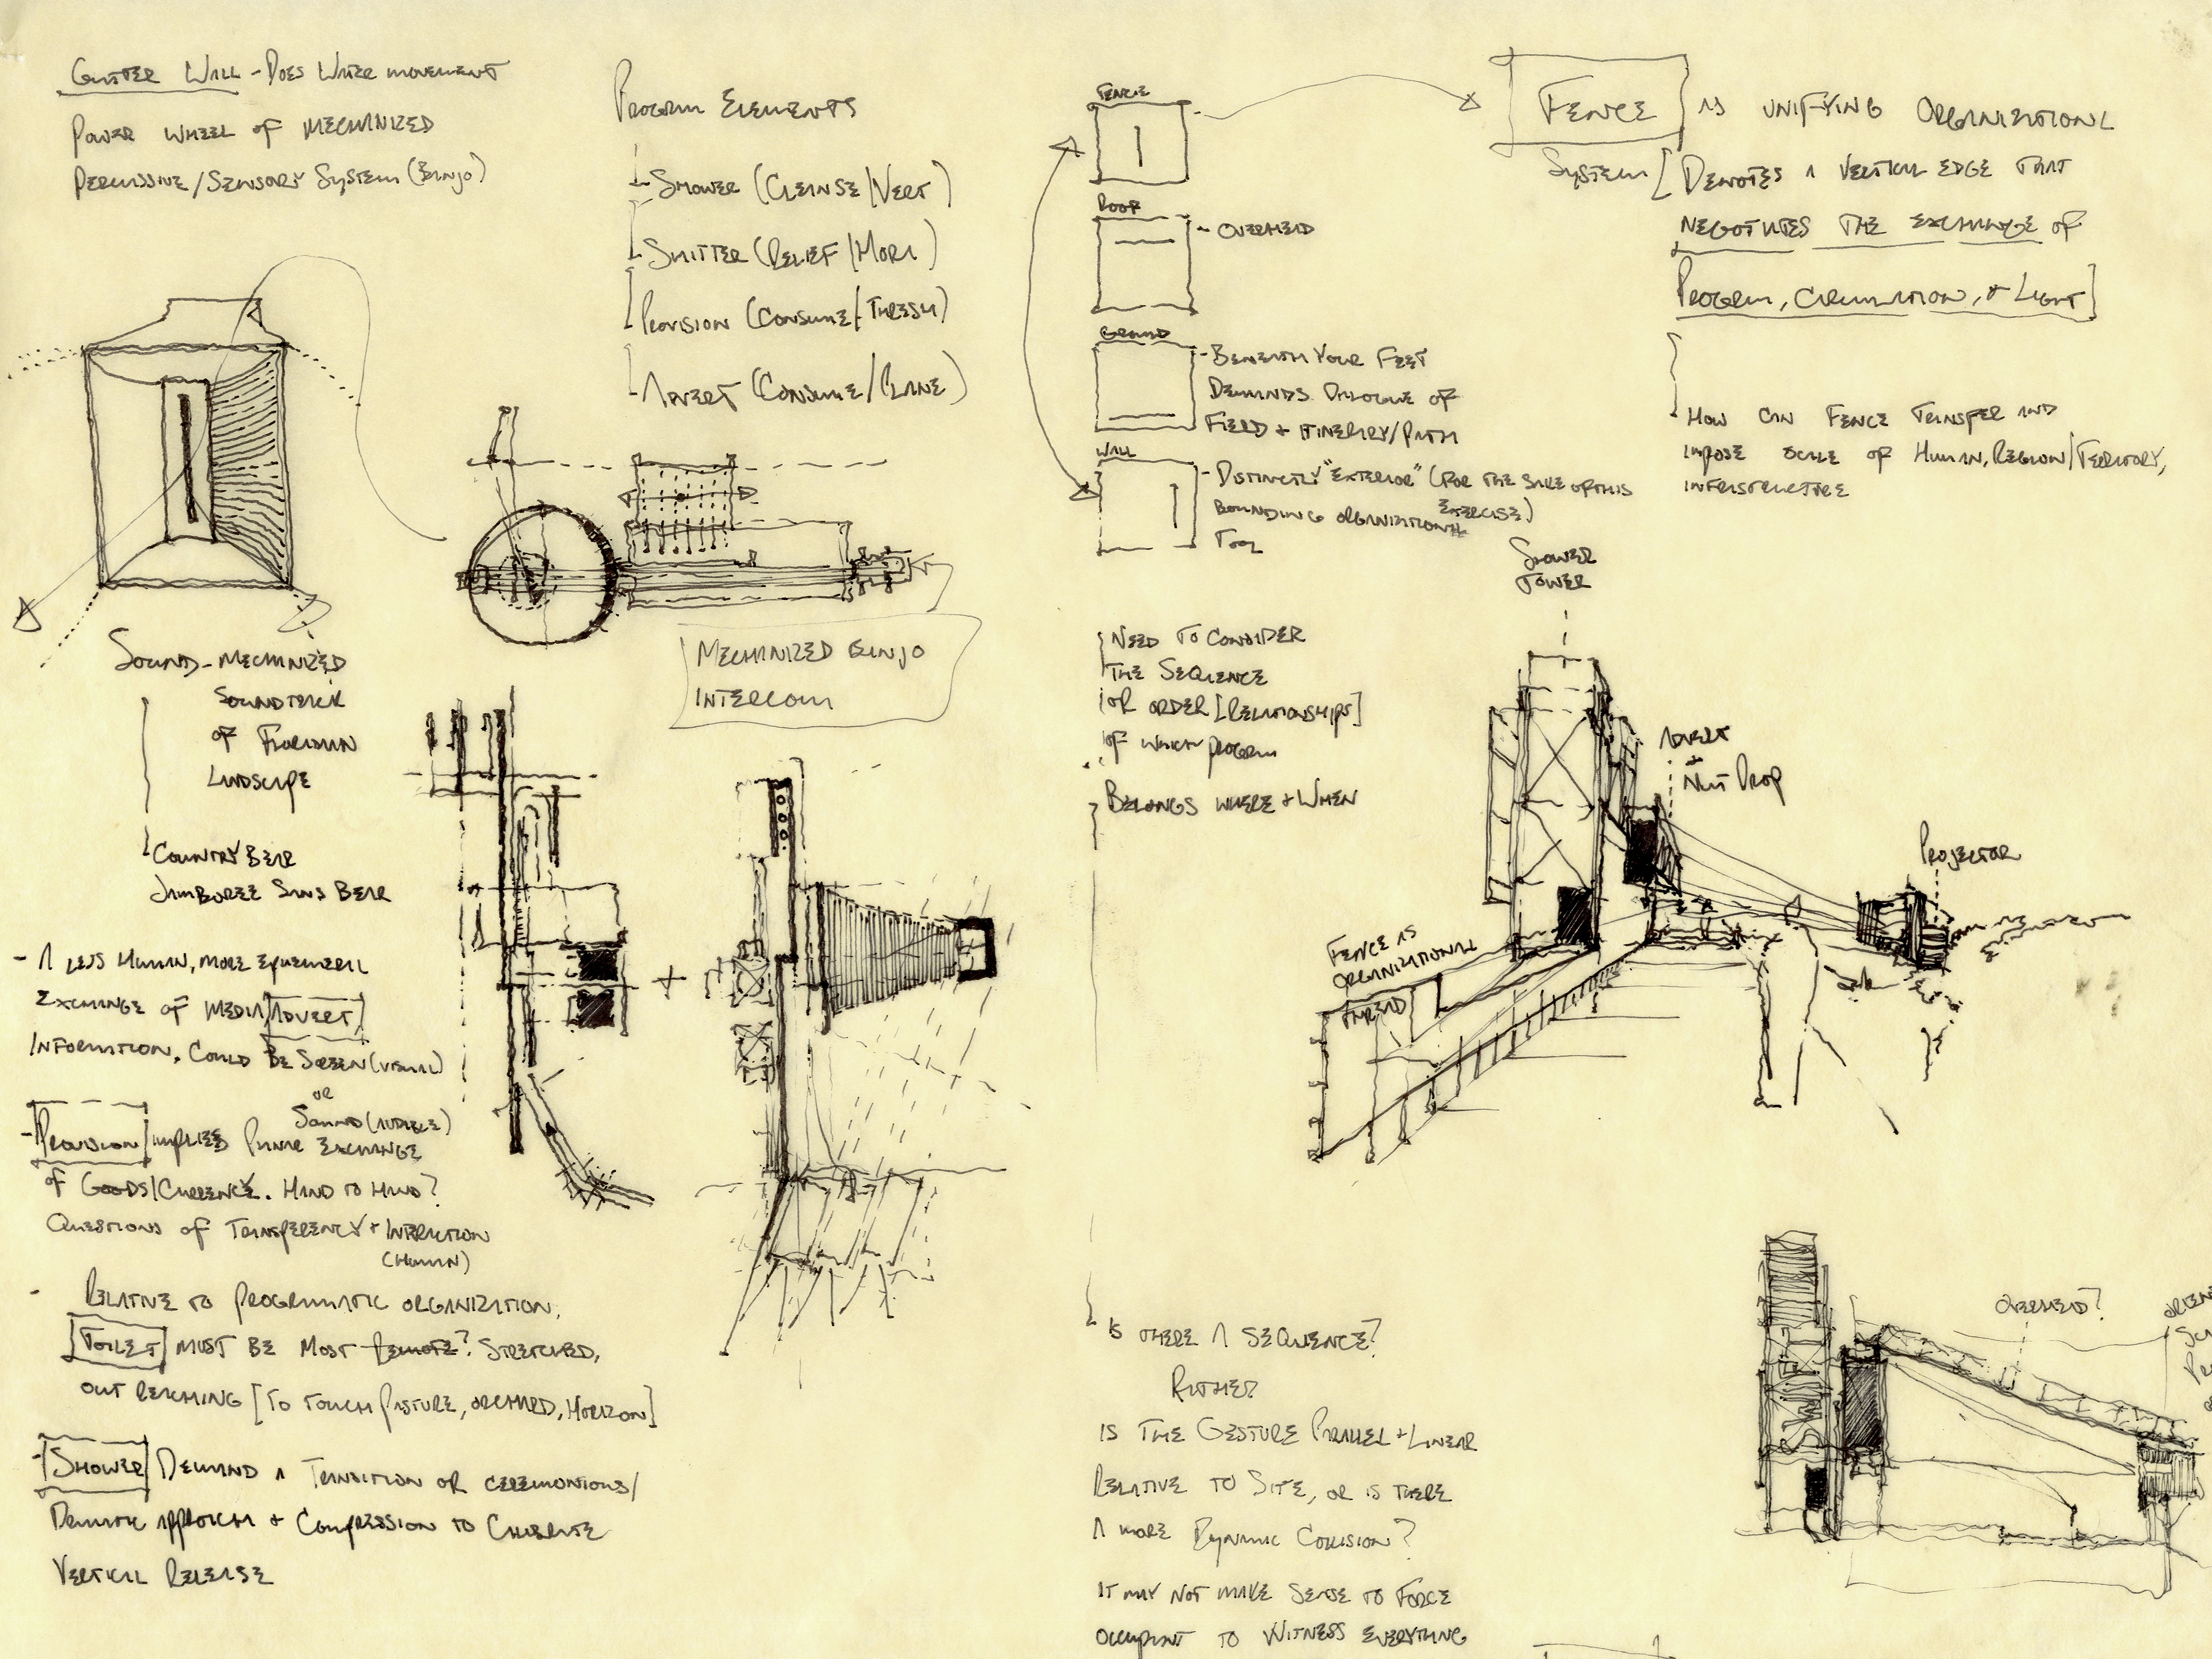 GUTTER WALL - DOES WATER MOVEMENT
POWER WHEEL OF MECHANIZED
PERCUSSIVE/SENSORY SYSTEM (BANJO)
PROGRAM ELEMENTS
SHOWER (CLEANSE/VERT)
SHITTER (RELIEF/HORZ)
PROVISION (CONSUME/THRESH)
ADVERT (CONSUME/PLANE)
SOUND-MECHANIZED
SOUNDTRACK
OF FLORIDIAN
LANDSCAPE
COUNTRY BEAR
JAMBOREE SANS BEAR
MECHANIZED BANJO
INTERCOM
- A LESS HUMAN, MORE EPHEMERAL
EXCHANGE OF MEDIA/ADVERT/
INFORMATION. COULD BE SCREEN (VISUAL)
OR
SOUND (AUDIBLE)
- PROVISION IMPLIES PLANAR EXCHANGE
OF GOODS/CURRENCY. HAND TO HAND?
QUESTIONS OF TRANSPARENCY + INTERACTION
(HUMAN)
- RELATIVE TO PROGRAMMATIC ORGANIZATION,
TOILET MUST BE MOST REMOTE? STRETCHED,
OUT REACHING [TO TOUCH PASTURE, ORCHARD, HORIZON]
- SHOWER DEMAND A TRANSITION OR CEREMONIOUS/
DRAMATIC APPROACH + COMPRESSION TO CELEBRATE
VERTICAL RELEASE
FENCE
ROOF
- OVERHEAD
GROUND
- BENEATH YOUR FEET
DEMANDS DIALOGUE OF
FIELD + ITINERARY/PATH
WALL
- DISTINCTLY "EXTERIOR" (FOR THE SAKE OF THIS
EXERCISE)
BOUNDING ORGANIZATIONAL
TOOL
FENCE AS UNIFYING ORGANIZATIONL
SYSTEM [DENOTES A VERTICAL EDGE THAT
NEGOTIATES THE EXCHANGE OF
PROGRAM, CIRCULATION, + LIGHT]
HOW CAN FENCE TRANSFER AND
IMPOSE SCALE OF HUMAN, REGION/TERRITORY,
INFRASTRUCTURE
NEED TO CONSIDER
THE SEQUENCE
OR ORDER [RELATIONSHIPS]
OF WHICH PROGRAM
BELONGS WHERE + WHEN
SHOWER
TOWER
ADVERT
+
NUT DROP
PROJECTOR
FENCE AS
ORGANIZATIONAL
THREAD
IS THERE A SEQUENCE?
RATHER
IS THE GESTURE PARALLEL + LINEAR
RELATIVE TO SITE, OR IS THERE
A MORE DYNAMIC COLLISION?
IT MAY NOT MAKE SENSE TO FORCE
OCCUPANT TO WITNESS EVERYTHING
OVERHEAD?